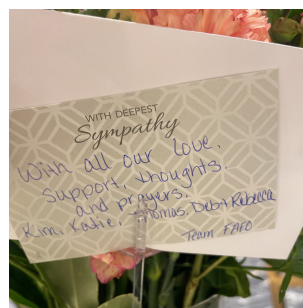 WITH DEEPEST
Sympathy
With all our love,
support, thoughts
and prayers.
Kim, Katie, Thomas, Deb + Rebecca
Team FAFO